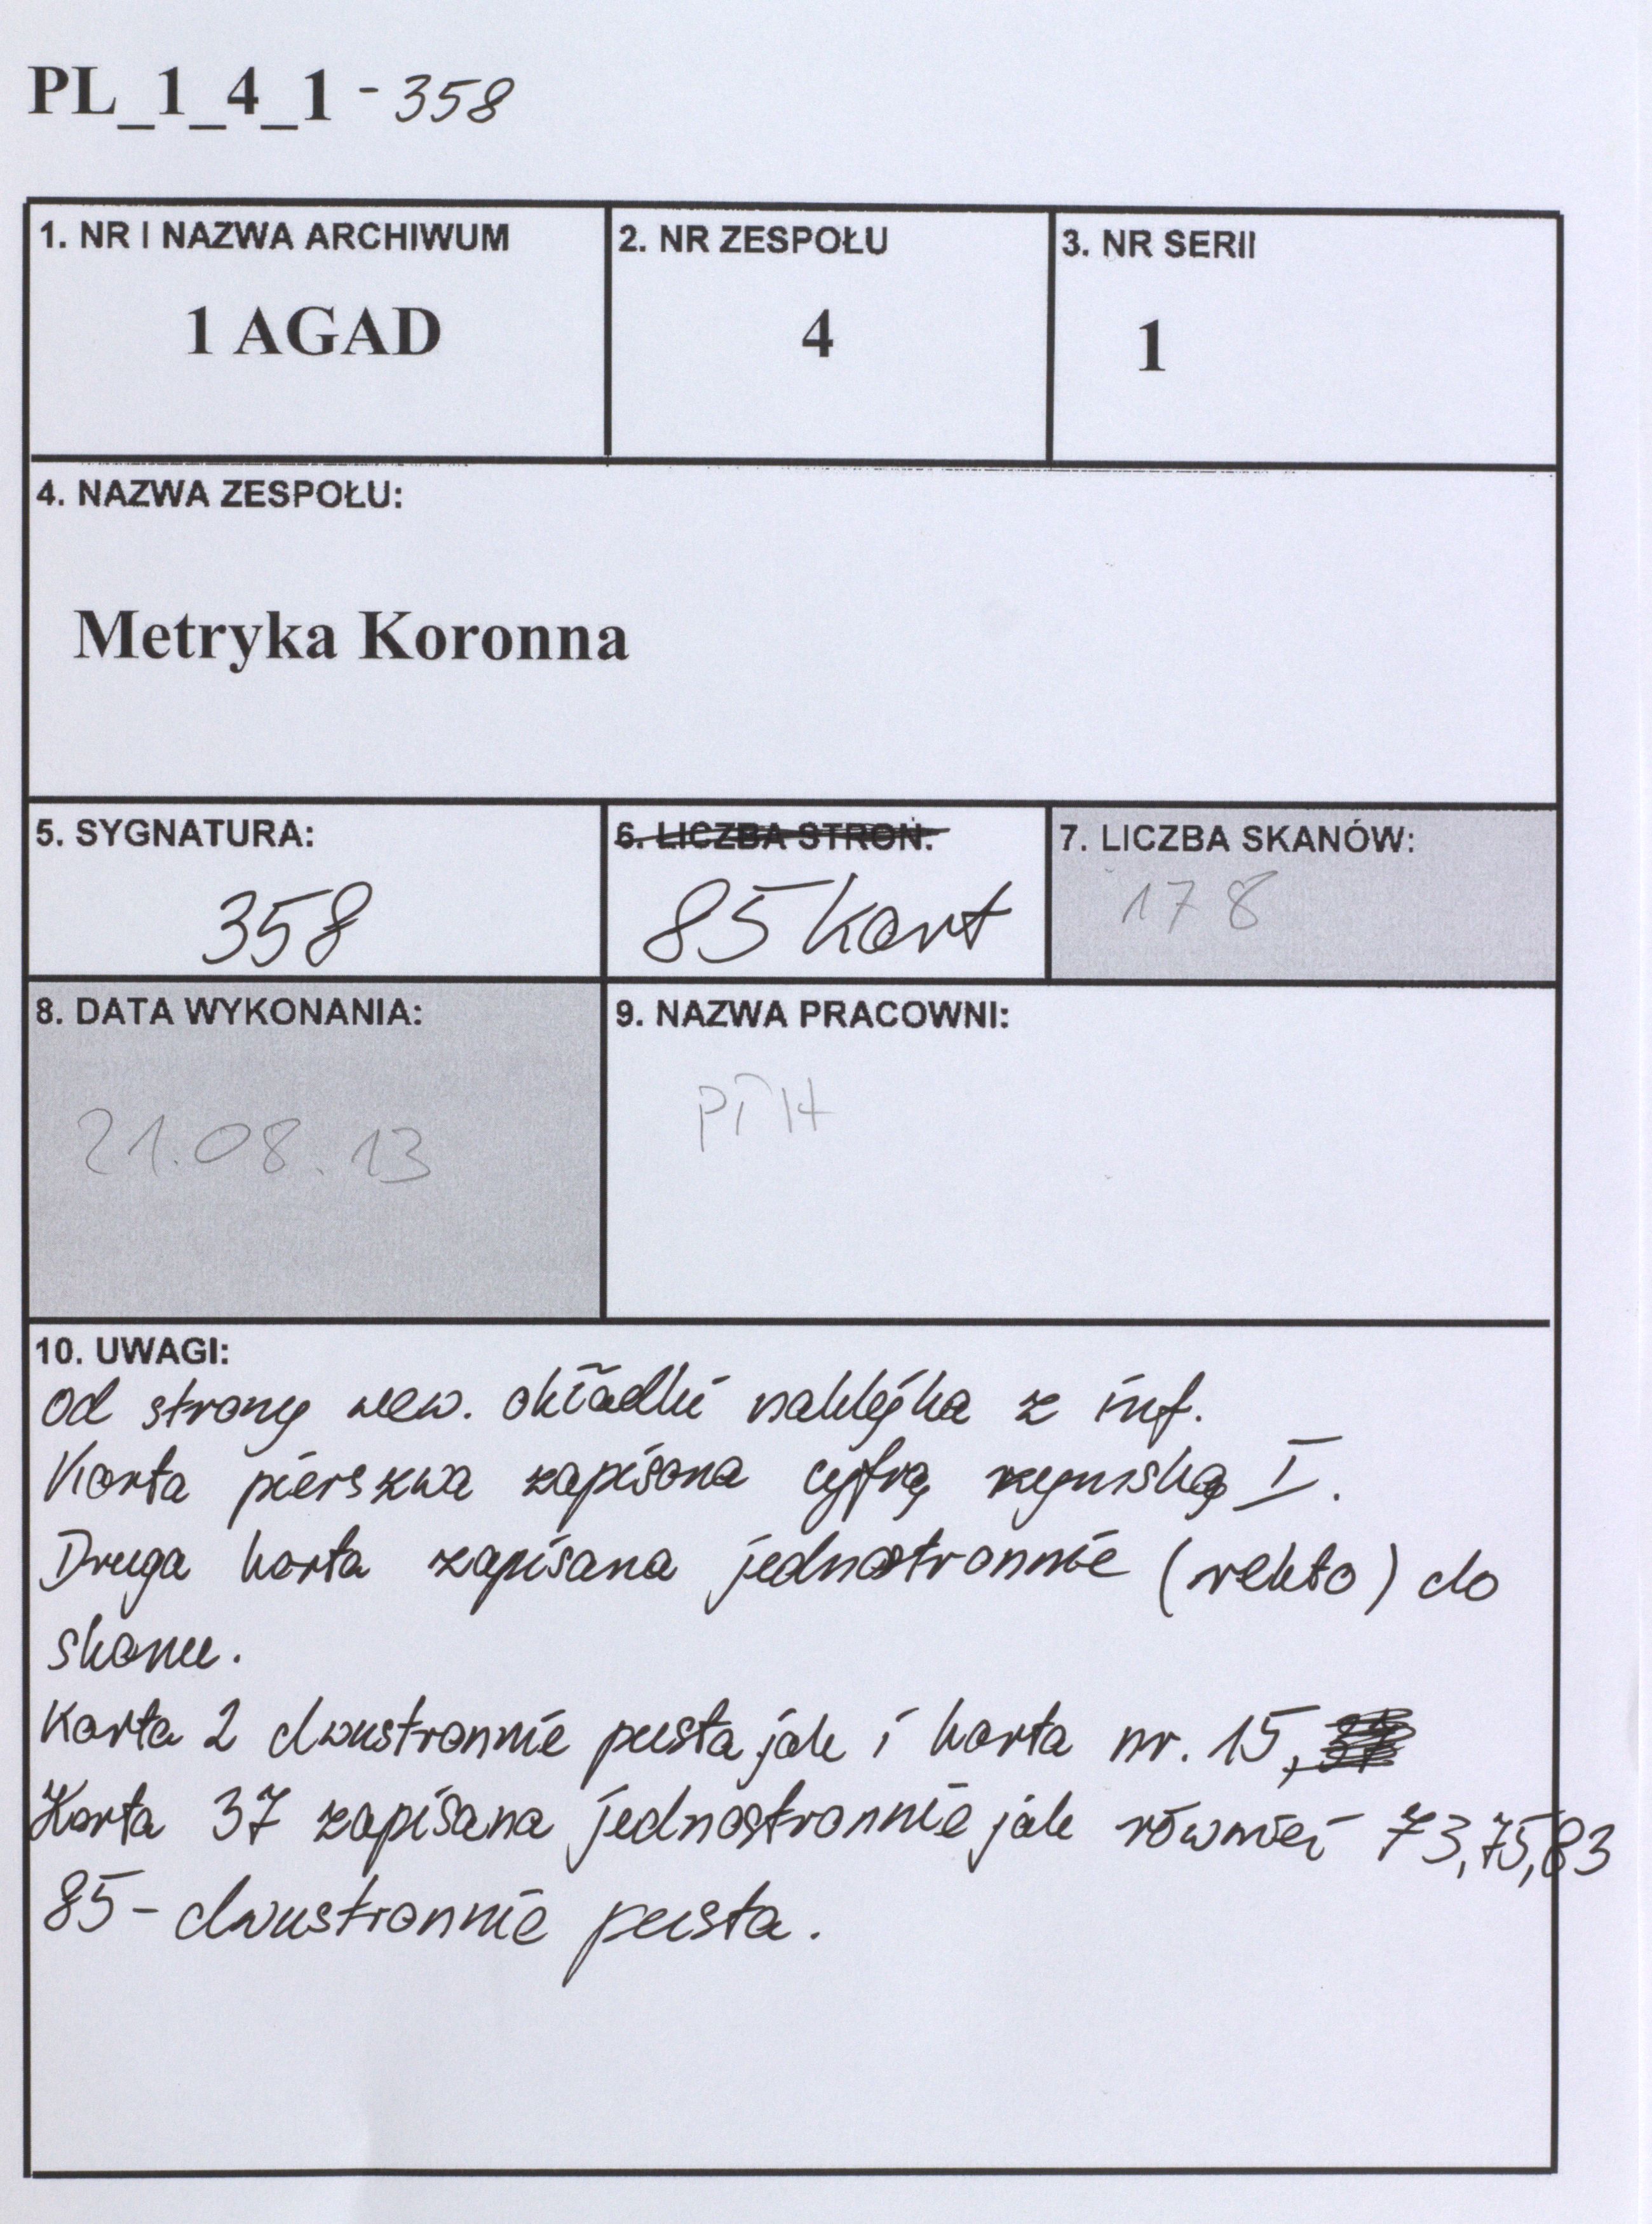 PL_1_4_1 - 358
1. NR I NAZWA ARCHIWUM
1 AGAD
2. NR ZESPOŁU
4
3. NR SERII
1
4. NAZWA ZESPOŁU:
Metryka Koronna
5. SYGNATURA:
358
6. LICZBA STRON:
85 kart
7. LICZBA SKANÓW:
178
8. DATA WYKONANIA:
21.08.13
9. NAZWA PRACOWNI:
10. UWAGI:
Od strony wew. okładki naklejka z inf.
Karta pierszwa zapisana cyfrą rzymską I.
Druga karta zapisana jednostronnie (rekto) do
skanu.
Karta 2 dwustronnie pusta jak i karta nr. 15,
Karta 37 zapisana jednostronnie jak również 73, 75, 83
85 - dwustronnie pusta.